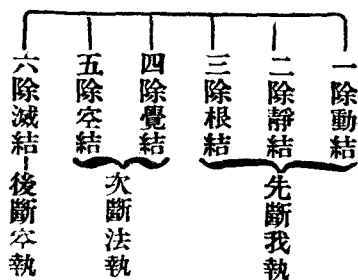 一除動結
二除靜結
三除根結
先斷我執
四除覺結
五除空結
次斷法執
六除滅結
後斷空執